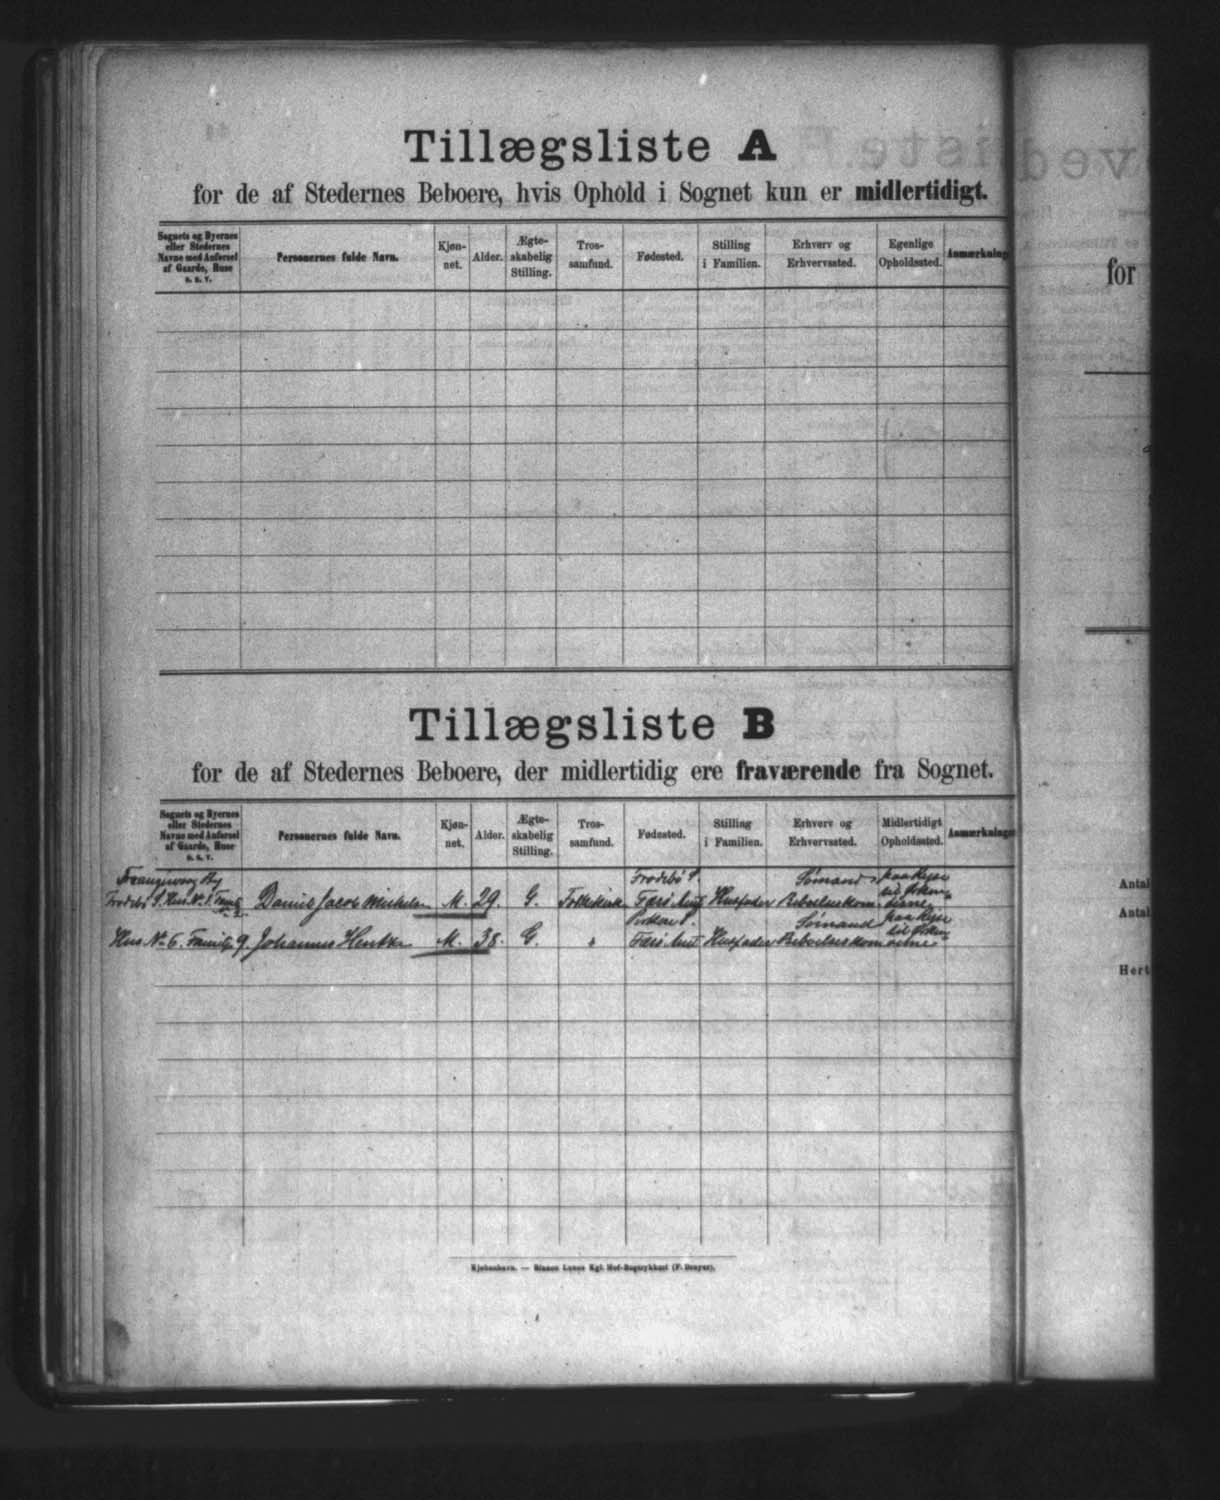 Tillægsliste A
for de af Stedernes Beboere, hvis Ophold i Sognet kun er midlertidigt.
Sognets og Byernes eller Stedernes Navne med Anførsel af Gaarde, Huse o. s. v.
Personernes fulde Navn.
Kjøn-net.
Alder.
Ægte-skabelig Stilling.
Tros-samfund.
Fødested.
Stilling i Familien.
Erhverv og Erhvervssted.
Egenlige Opholdssted.
Anmærkning
Tillægsliste B
for de af Stedernes Beboere, der midlertidig ere fraværende fra Sognet.
Sognets og Byernes eller Stedernes Navne med Anførsel af Gaarde, Huse o. s. v.
Personernes fulde Navn.
Kjøn-net.
Alder.
Ægte-skabelig Stilling.
Tros-samfund.
Fødested.
Stilling i Familien.
Erhverv og Erhvervssted.
Midlertidigt Opholdssted.
Anmærkninge
By Frodebö S. Daniel Jacob M. 29. G. Folkekirk Frodebö S. Færö Amt Husfader Sömand paa Rejse til
Hus No 6. Familie 9. Johannes M. 38. G. " Færö Amt Husfader Sömand paa Rejse til
Kjøbenhavn. — Bianco Lunos Kgl. Hof-Bogtrykkeri (F. Dreyer).
for
Antal
Antal
Hert